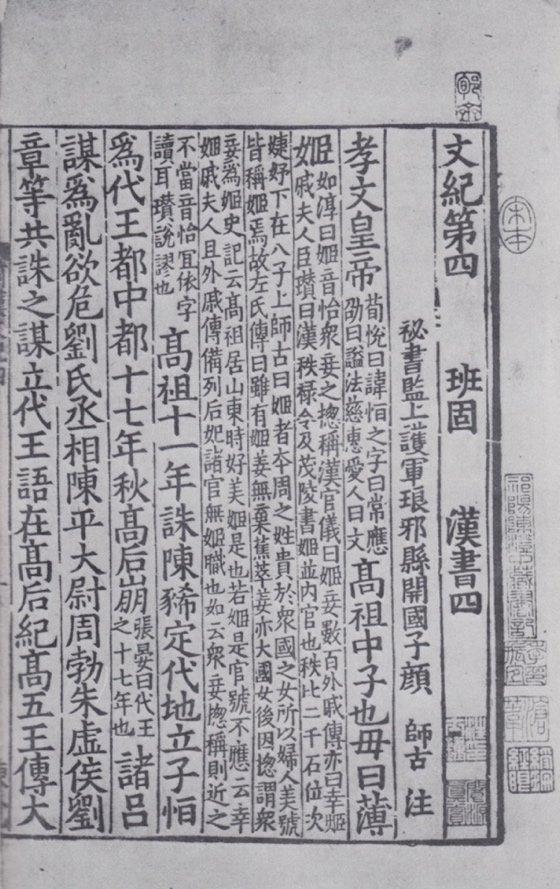 文紀第四 班固 漢書四
祕書監上護軍琅邪縣開國子顔 師古 注
孝文皇帝
荀悅曰諱恒之字曰常應
劭曰謚法慈惠愛人曰文
高祖中子也毋曰薄
姬
如淳曰姬音怡衆妾之揔稱漢官儀曰姬妾數百外戚傳亦曰幸姬
戚夫人臣瓚曰漢秩祿令及茂陵書姬並内官也秩比二千石位次
婕妤下在八子上師古曰姬者本周之姓貴於衆國之女所以婦人美號
皆稱姬焉故左氏傳曰雖有姬姜無棄蕉萃姜亦大國女後因揔謂衆
妾爲姬史記云高祖居山東時好美姬是也若姬是官號不應云幸
姬戚夫人且外戚傳備列后妃諸官無姬職也如云衆妾揔稱則近之
不當音怡宜依字
讀耳瓚說謬也
高祖十一年誅陳豨定代地立子恒
爲代王都中都十七年秋高后崩
張晏曰代王
之十七年也
諸呂
謀爲亂欲危劉氏丞相陳平大尉周勃朱虛侯劉
章等共誅之謀立代王語在高后紀高五王傳大
宋本